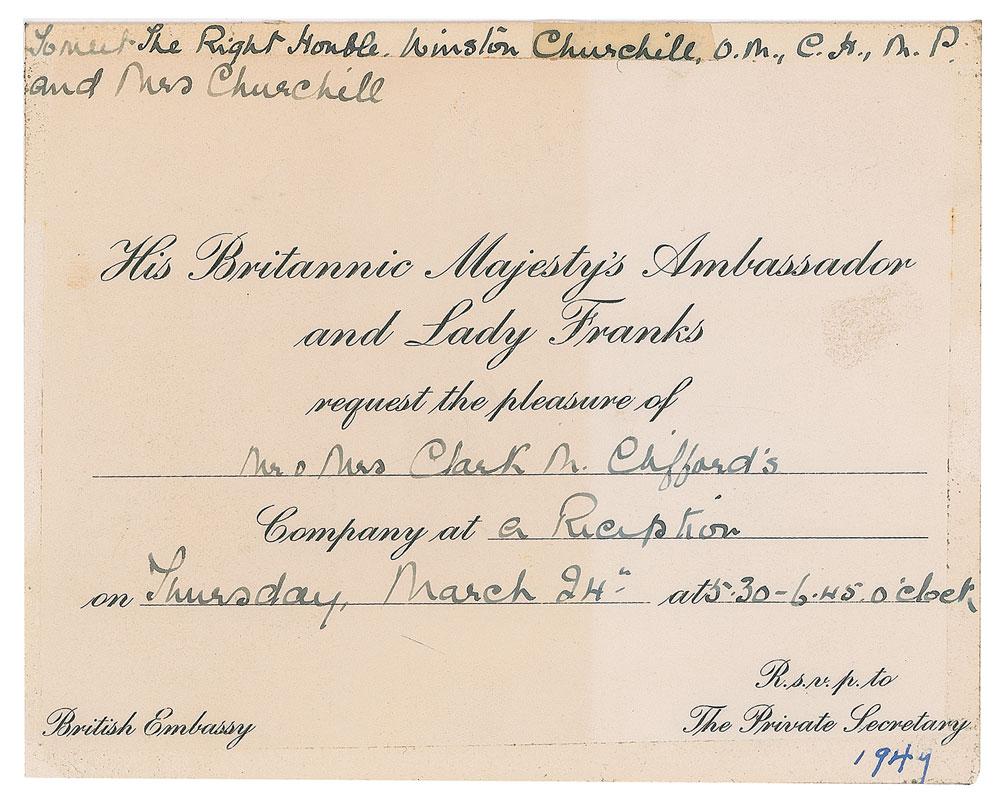 To meet The Right Honble. Winston Churchill, O.M., C.H., M.P.
and Mrs Churchill
His Britannic Majesty's Ambassador
and Lady Franks
request the pleasure of
Mr & Mrs Clark M. Clifford's
Company at a Reception
on Thursday, March 24th at 5.30-6.45 o'clock
R.s.v.p. to
British Embassy The Private Secretary
1949